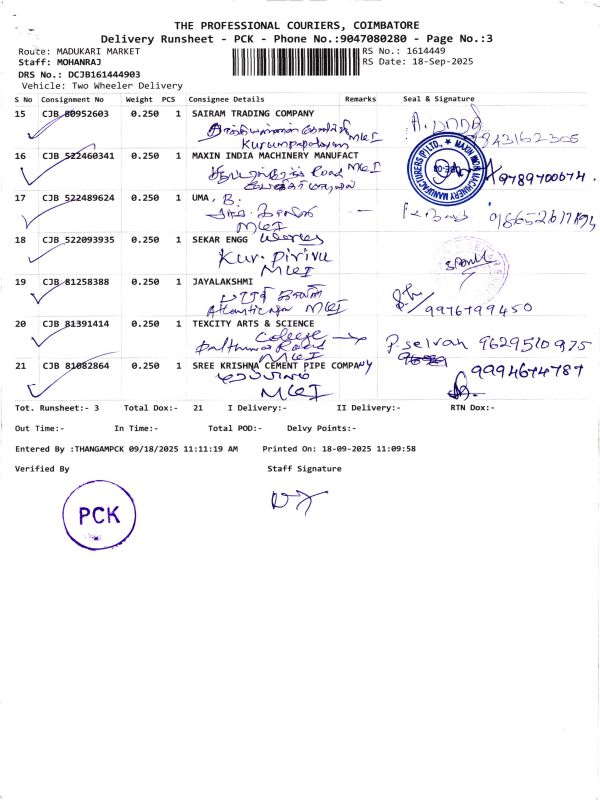 THE PROFESSIONAL COURIERS, COIMBATORE
Delivery Runsheet - PCK - Phone No.:9047080280 - Page No.:3
Route: MADUKARI MARKET
RS No.: 1614449
Staff: MOHANRAJ
RS Date: 18-Sep-2025
DRS No.: DCJB161444903
Vehicle: Two Wheeler Delivery
S No Consignment No Weight PCS Consignee Details Remarks Seal & Signature
15 CJB 80952603 0.250 1 SAIRAM TRADING COMPANY
MKI 9843162305
Kurumpapalayam
16 CJB 522460341 0.250 1 MAXIN INDIA MACHINERY MANUFACT
Road MKI 9789700674.
MAXIN INDIA MACHINERY MANUFACTURERS (P) LTD.
17 CJB 522489624 0.250 1 UMA, B.
MKI
18 CJB 522093935 0.250 1 SEKAR ENGG Works
Kur. Pirivu
MKI
19 CJB 81258388 0.250 1 JAYALAKSHMI
MKI 9976799450
20 CJB 81391414 0.250 1 TEXCITY ARTS & SCIENCE
College → P. Selvan 9629510975
Road
MKI
21 CJB 81082864 0.250 1 SREE KRISHNA CEMENT PIPE COMPANY
9994674787
MKI
Tot. Runsheet:- 3 Total Dox:- 21 I Delivery:- II Delivery:- RTN Dox:-
Out Time:- In Time:- Total POD:- Delvy Points:-
Entered By :THANGAMPCK 09/18/2025 11:11:19 AM Printed On: 18-09-2025 11:09:58
Verified By Staff Signature
PCK